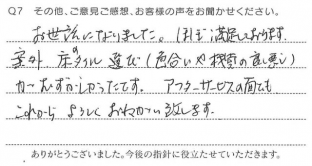 Q7 その他、ご意見ご感想、お客様の声をお聞かせください。
お世話になりました。ほぼ満足しております。
室外 床のタイル選び（色合いや材質の良悪し）
がむずかしかったです。アフターサービスの面でも
これからよろしくおねがい致します。
ありがとうございました。今後の指針に役立たせていただきます。